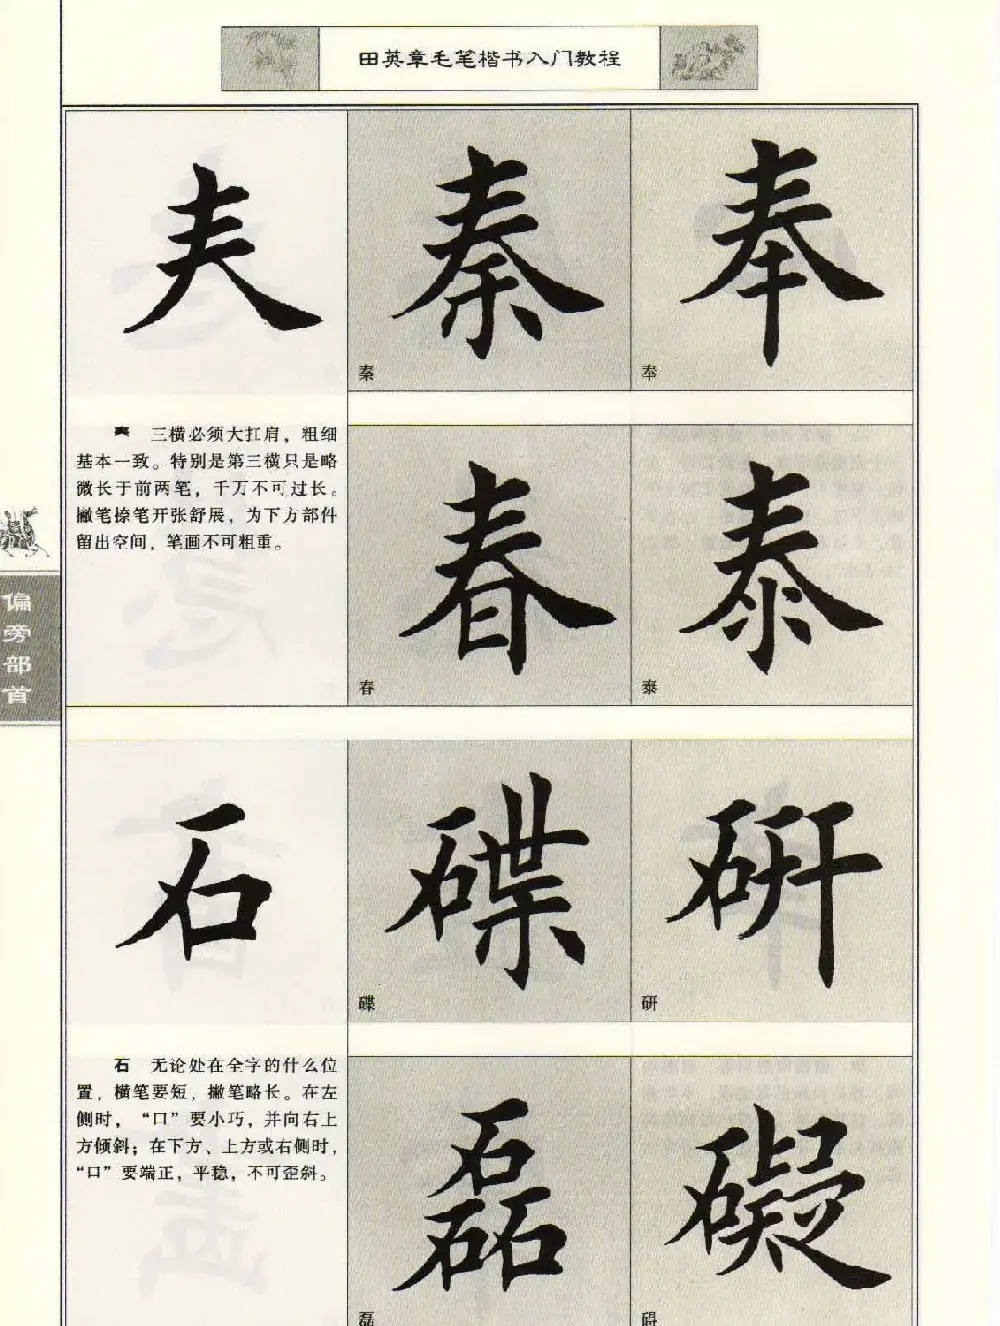 田英章毛笔楷书入门教程
𡗗 秦 奉
秦 奉
𡗗 三横必须大扛肩，粗细
基本一致。特别是第三横只是略
微长于前两笔，千万不可过长。
撇笔捺笔开张舒展，为下方部件
留出空间，笔画不可粗重。
春 泰
春 泰
偏旁部首
石 碟 研
碟 研
石 无论处在全字的什么位
置，横笔要短，撇笔略长。在左
侧时，“口”要小巧，并向右上
方倾斜；在下方、上方或右侧时，
“口”要端正，平稳，不可歪斜。
磊 礙
磊 碍